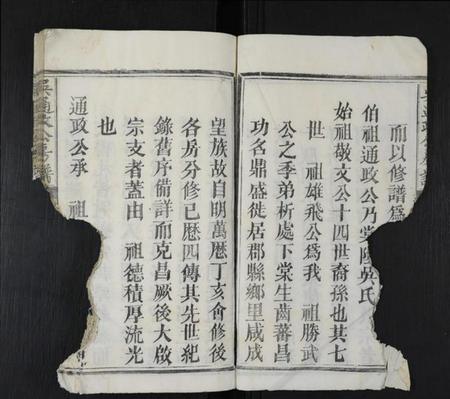 而以修譜爲
伯祖通政公乃棠陂吳氏
始祖敬文公十四世裔孫也其七
世 祖雄飛公爲我 祖勝武
公之季弟析處下棠生齒蕃昌
功名鼎盛徙居郡縣鄉里咸成
望族故自明萬曆丁亥僉修後
各房分修已歷四傳其先世紀
錄舊序備詳而克昌厥後大啟
宗支者蓋由 祖德積厚流光
也
通政公承 祖
吳通政公房譜